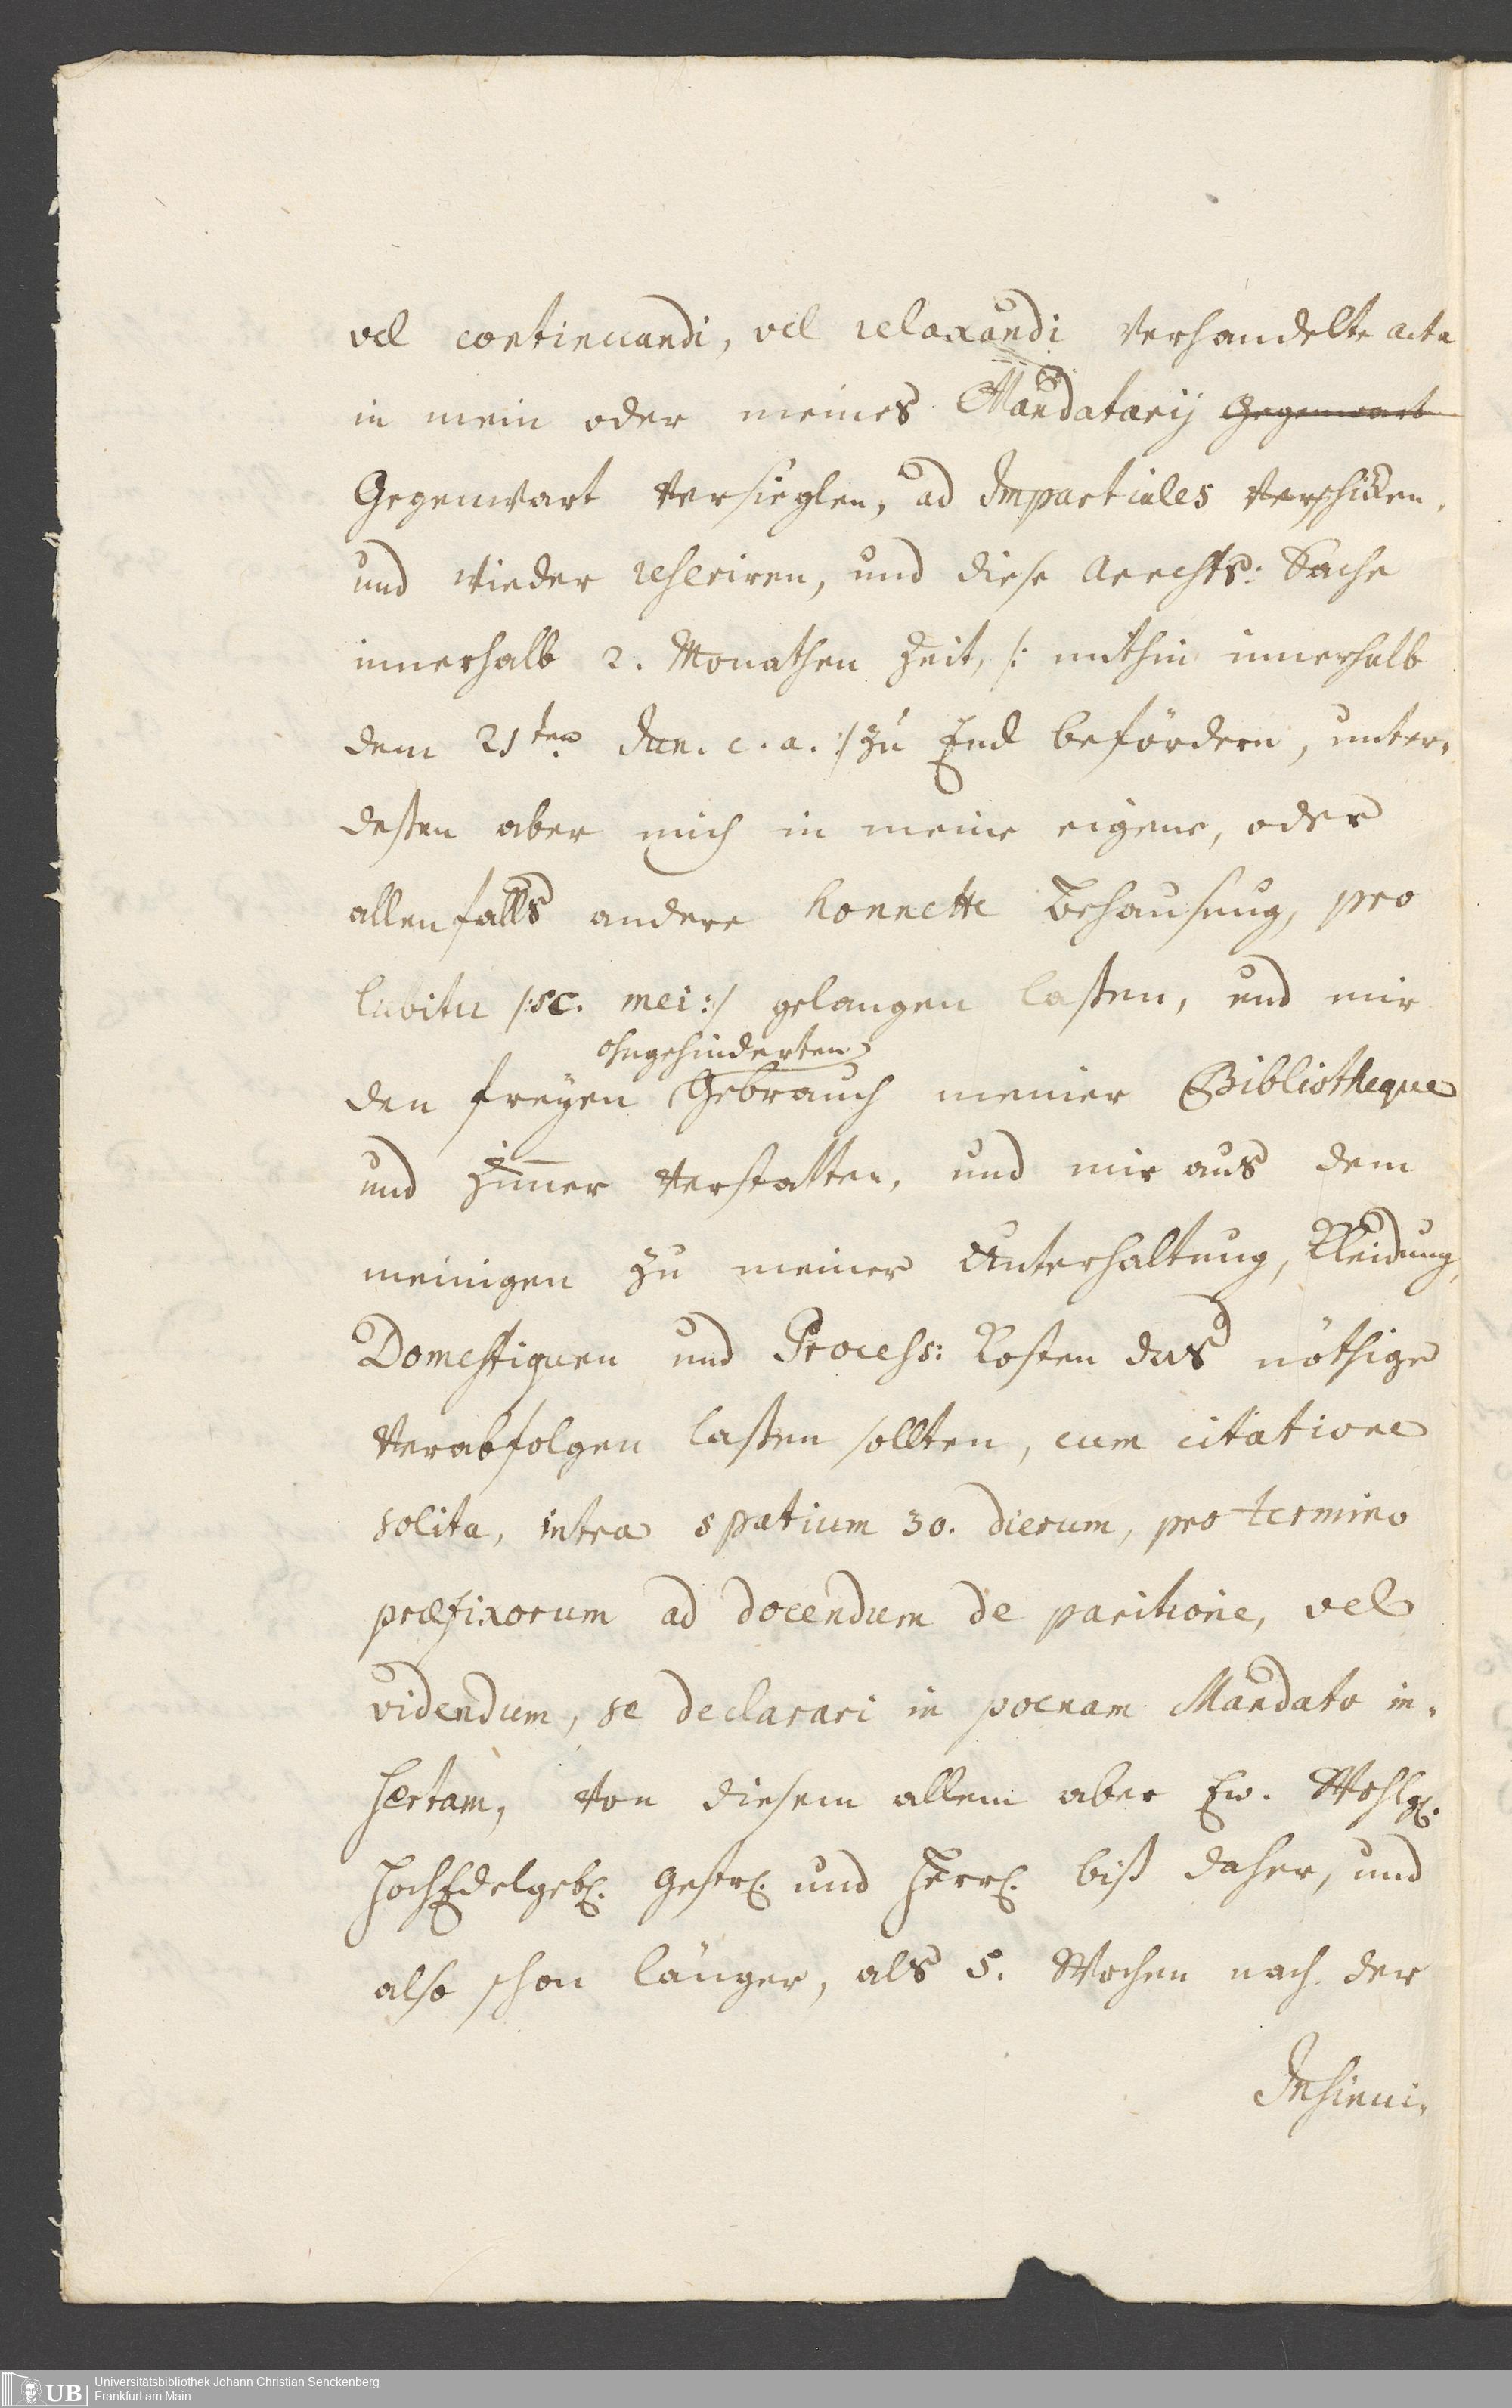 vel continuandi, vel relaxandi verhandelte acta
in mein oder meines Mandatarij Gegenwart
Gegenwart versieglen, ad Impartiales verschicken,
und wieder reseriren, und diese Arrests: Sache
innerhalb 2. Monathen Zeit, /: mithin innerhalb
dem 21ten Jun. c. a. :/ zu End befördern, unter-
deßen aber mich in meine eigene, oder
allenfalls andere honnette Behausung, pro
lubitu /: sc. mei :/ gelangen laßen, und mir
ohngehinderten
den freyen Gebrauch meiner Bibliotheque
und Zimmer verstatten, und mir aus dem
meinigen zu meiner Unterhaltung, Kleidung,
Domestiquen und Process: Kosten das nöthige
verabfolgen laßen sollten, cum citatione
solita, intra spatium 30. dierum, pro termino
præfixorum ad docendum de paritione, vel
videndum, se declarari in poenam Mandato in-
sertam, von diesem allem aber Ew. Wohlg.
HochEdelgeb. Gestr. und Herrl. biß daher, und
also schon länger, als 5. Wochen nach der
Insinui-
Universitätsbibliothek Johann Christian Senckenberg
Frankfurt am Main
UB